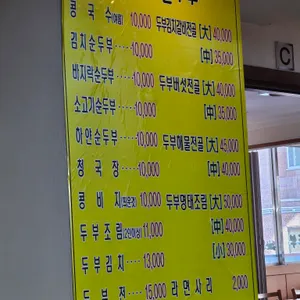 콩국수(여름) 10,000 두부김치갈비전골 [大] 40,000
김치순두부 10,000 [中] 35,000
바지락순두부 10,000 두부버섯전골 [大] 40,000
소고기순두부 10,000 [中] 35,000
하얀순두부 10,000 두부해물전골 [大] 45,000
청국장 10,000 [中] 40,000
콩비지 10,000 두부명태조림 [大] 50,000
두부조림 11,000 [中] 40,000
[小] 30,000
두부김치 13,000
두부전 15,000 라면사리 2,000
C